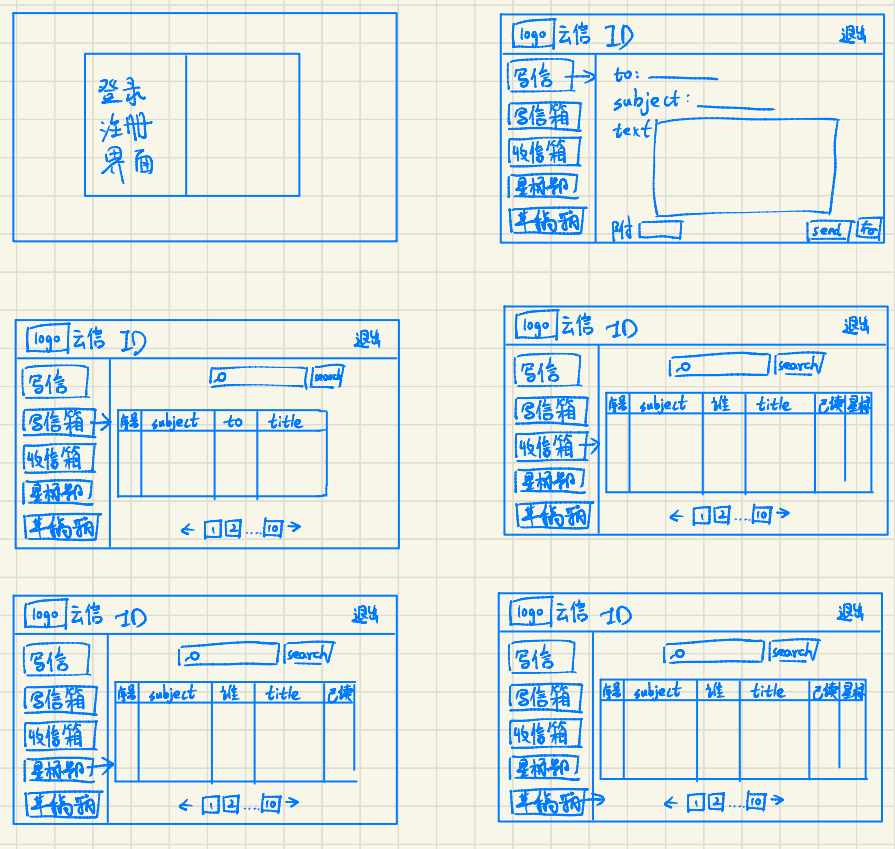 登录
注册
界面
logo 云信 ID 退出
写信
写信箱
收信箱
星标邮
草稿箱
to:
subject:
text
附
send 存
logo 云信 ID 退出
写信
写信箱
收信箱
星标邮
草稿箱
search
序号 subject to title
← 1 2 .... 10 →
logo 云信 ID 退出
写信
写信箱
收信箱
星标邮
草稿箱
search
序号 subject 谁 title 已读 星标
← 1 2 .... 10 →
logo 云信 ID 退出
写信
写信箱
收信箱
星标邮
草稿箱
search
序号 subject 谁 title 已读
← 1 2 .... 10 →
logo 云信 ID 退出
写信
写信箱
收信箱
星标邮
草稿箱
search
序号 subject 谁 title 已读 星标
← 1 2 .... 10 →